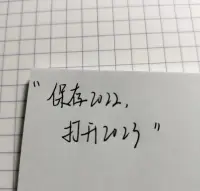 "保存2022,
打开2023"